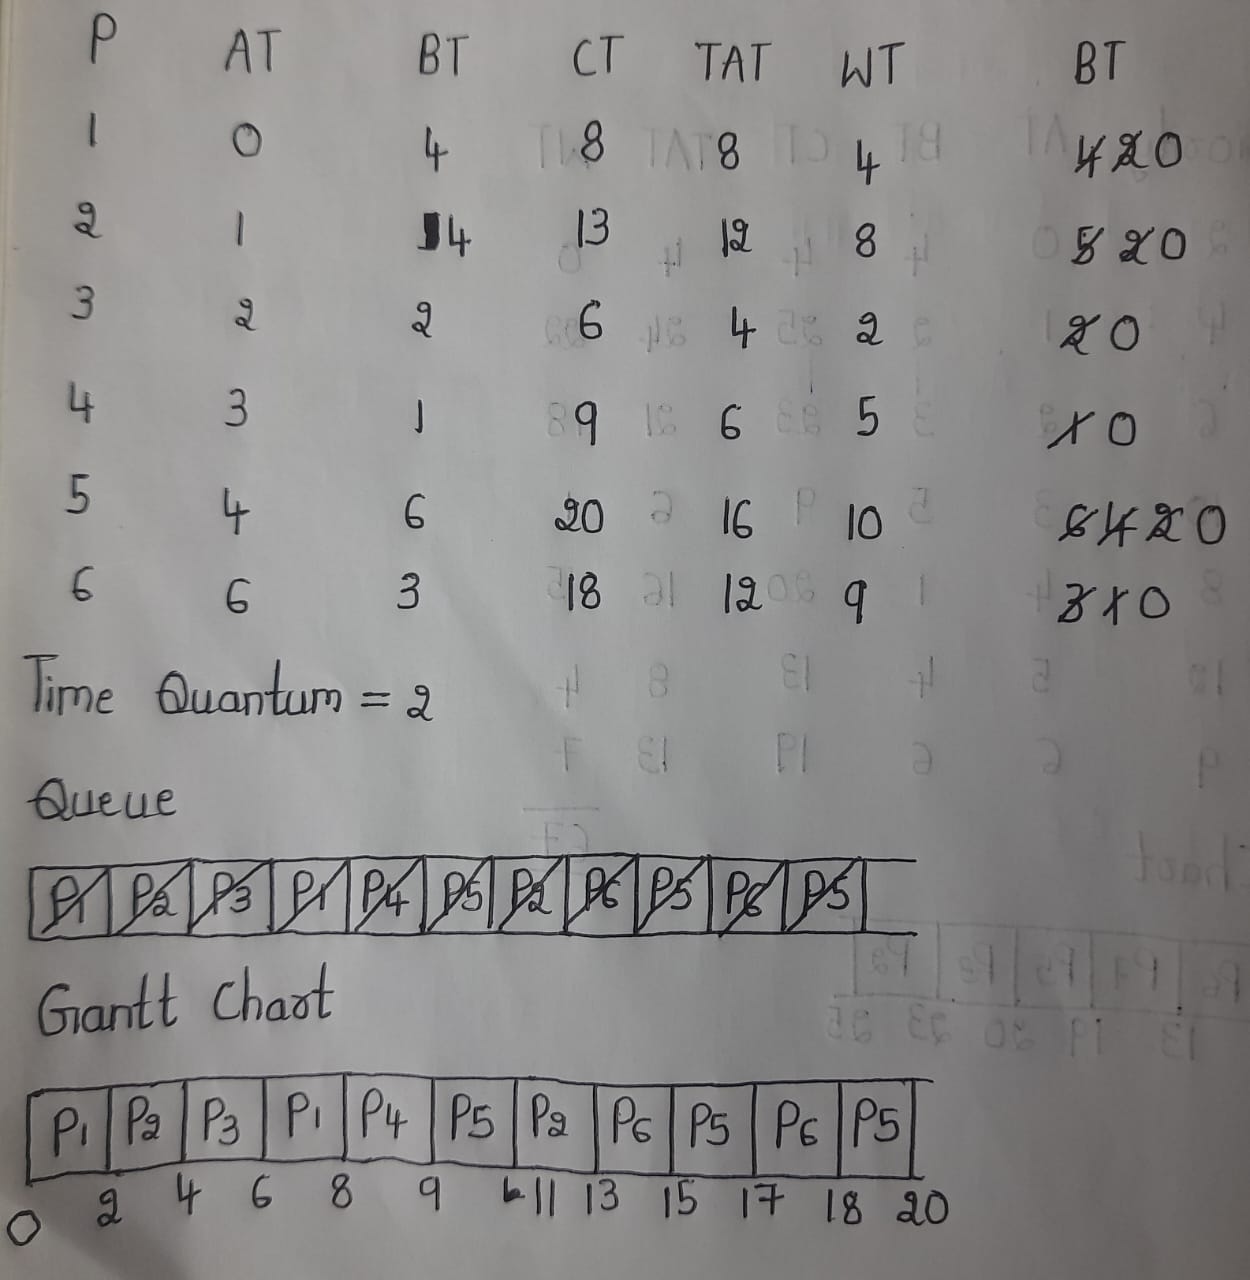 P AT BT CT TAT WT BT
1 0 4 8 8 4 4 2 0
2 1 4 13 12 8 5 2 0
3 2 2 6 4 2 2 0
4 3 1 9 6 5 1 0
5 4 6 20 16 10 6 4 2 0
6 6 3 18 12 9 3 1 0
Time Quantum = 2
Queue
P1 P2 P3 P1 P4 P5 P2 P6 P5 P6 P5
Gantt Chart
P1 P2 P3 P1 P4 P5 P2 P6 P5 P6 P5
0 2 4 6 8 9 11 13 15 17 18 20